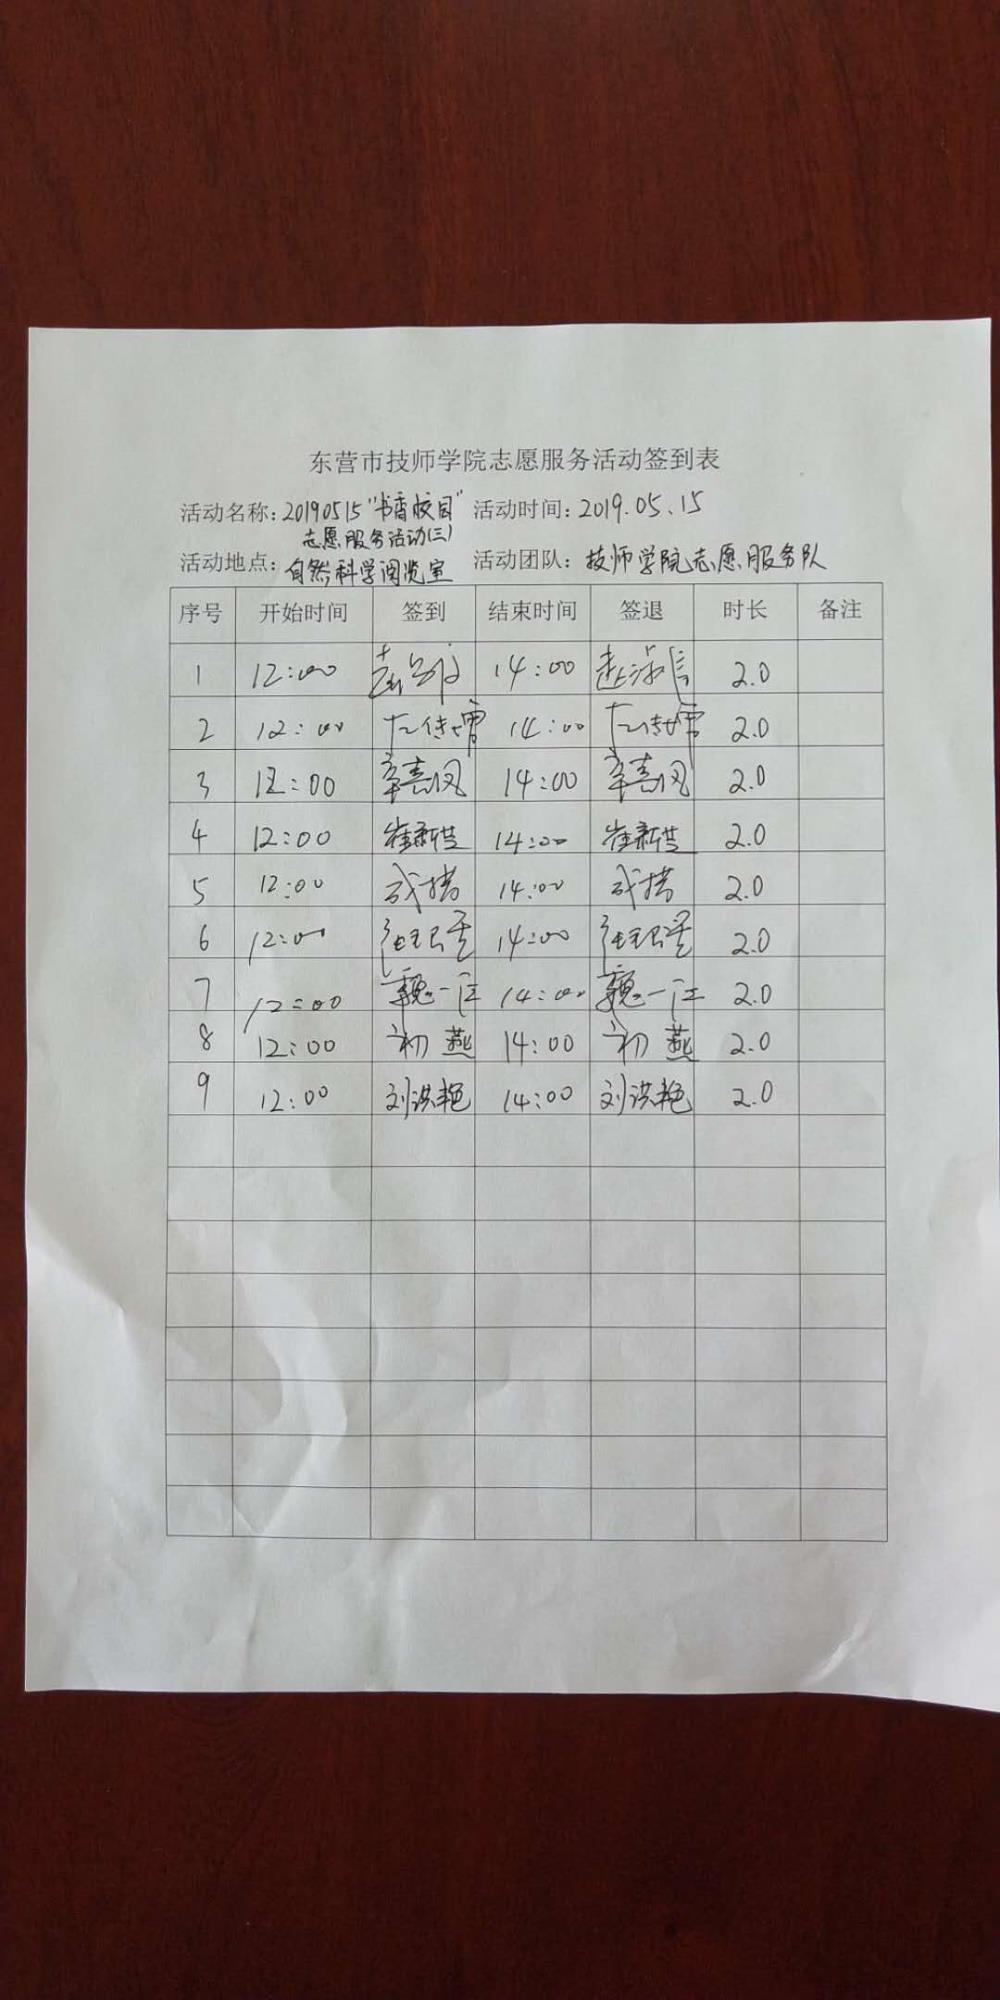 东营市技师学院志愿服务活动签到表
活动名称：20190515"书香校园" 活动时间：2019.05.15
志愿服务活动(三)
活动地点：自然科学阅览室 活动团队：技师学院志愿服务队
序号 开始时间 签到 结束时间 签退 时长 备注
1 12:00 14:00 2.0
2 12:00 14:00 2.0
3 12:00 14:00 2.0
4 12:00 崔新芸 14:00 崔新芸 2.0
5 12:00 14:00 2.0
6 12:00 14:00 2.0
7 12:00 魏一江 14:00 魏一江 2.0
8 12:00 初燕 14:00 初燕 2.0
9 12:00 刘洪艳 14:00 刘洪艳 2.0